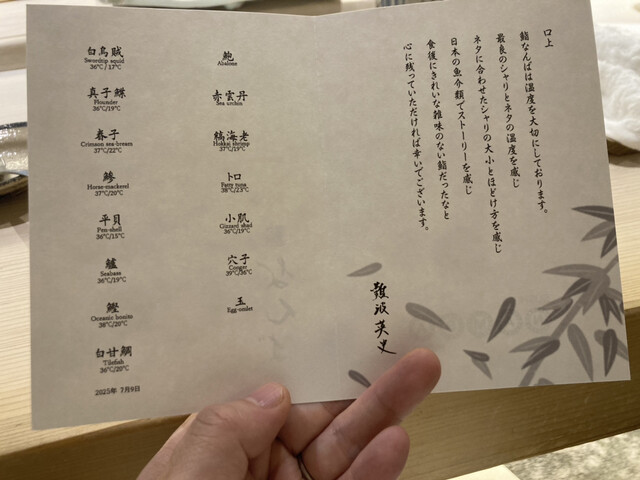 白烏賊
Swordtip squid
36℃/17℃
真子鰈
Flounder
36℃/19℃
春子
Crimson sea-bream
37℃/22℃
鯵
Horse-mackerel
37℃/20℃
平貝
Pen-shell
36℃/15℃
鱸
Seabass
36℃/19℃
鰹
Oceanic bonito
36℃/20℃
白甘鯛
Tilefish
36℃/20℃
2025年 7月9日
鮑
Abalone
赤雲丹
Sea urchin
縞海老
Hokkai shrimp
37℃/19℃
トロ
Fatty tuna
38℃/23℃
小肌
Gizzard shad
36℃/19℃
穴子
Conger
39℃/36℃
玉
Egg-omlet
口上
鮨なんばは温度を大切にしております。
最良のシャリとネタの温度を感じ
ネタに合わせたシャリの大小とほどけ方を感じ
日本の魚介類でストーリーを感じ
食後にきれいな雑味のない鮨だったなと
心に残っていただければ幸いでございます。
難波英史